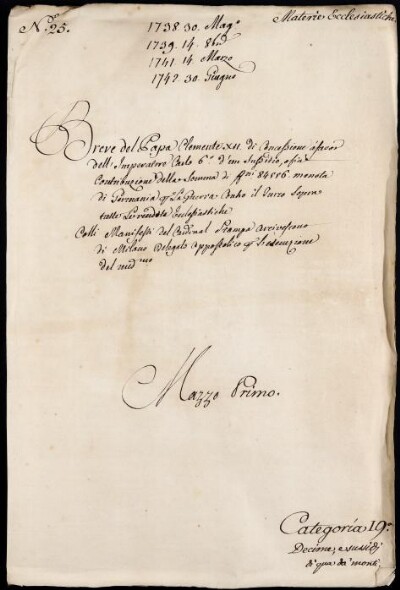 N.º 25.
Materie Ecclesiastiche
1738. 30. Mag.º
1739. 14. 8bre
1741. 14. Marzo
1742. 30. Giugno
Breve del Papa Clemente XII. di Concessione a favor
dell' Imperatore Carlo 6.º d'un Sussidio, o sia
Contribuzione della Somma di ffni 84556 moneta
di Germania p. la Guerra contro il Turco sopra
tutte le rendite Ecclesiastiche
Colli Manifesti del Cardinal Stampa Arcivescovo
di Milano Delegato Appostolico p. l'esecuzione
del med.mo
Mazzo Primo.
Categoria 19.ª
Decime, e sussidj
di qua da' monti